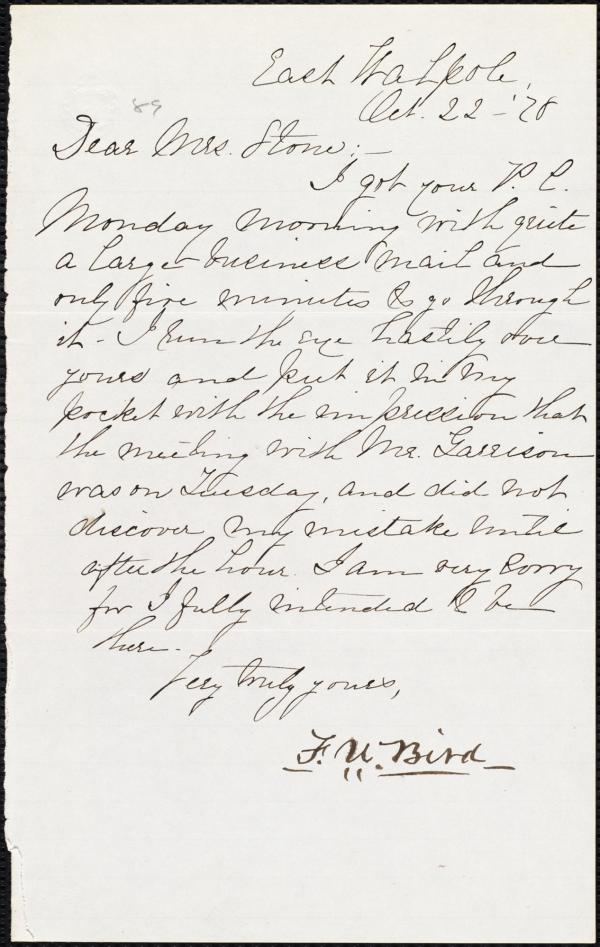 East Walpole,
Oct. 22 - '78
89
Dear Mrs. Stone:-
I got your P. C.
Monday morning with quite
a large business mail and
only five minutes to go through
it - I run the eye hastily over
yours and put it in my
pocket with the impression that
the meeting with Mr. Garrison
was on Tuesday, and did not
discover my mistake until
after the hour. I am very sorry
for I fully intended to be
there -
Very truly yours,
F. W. Bird